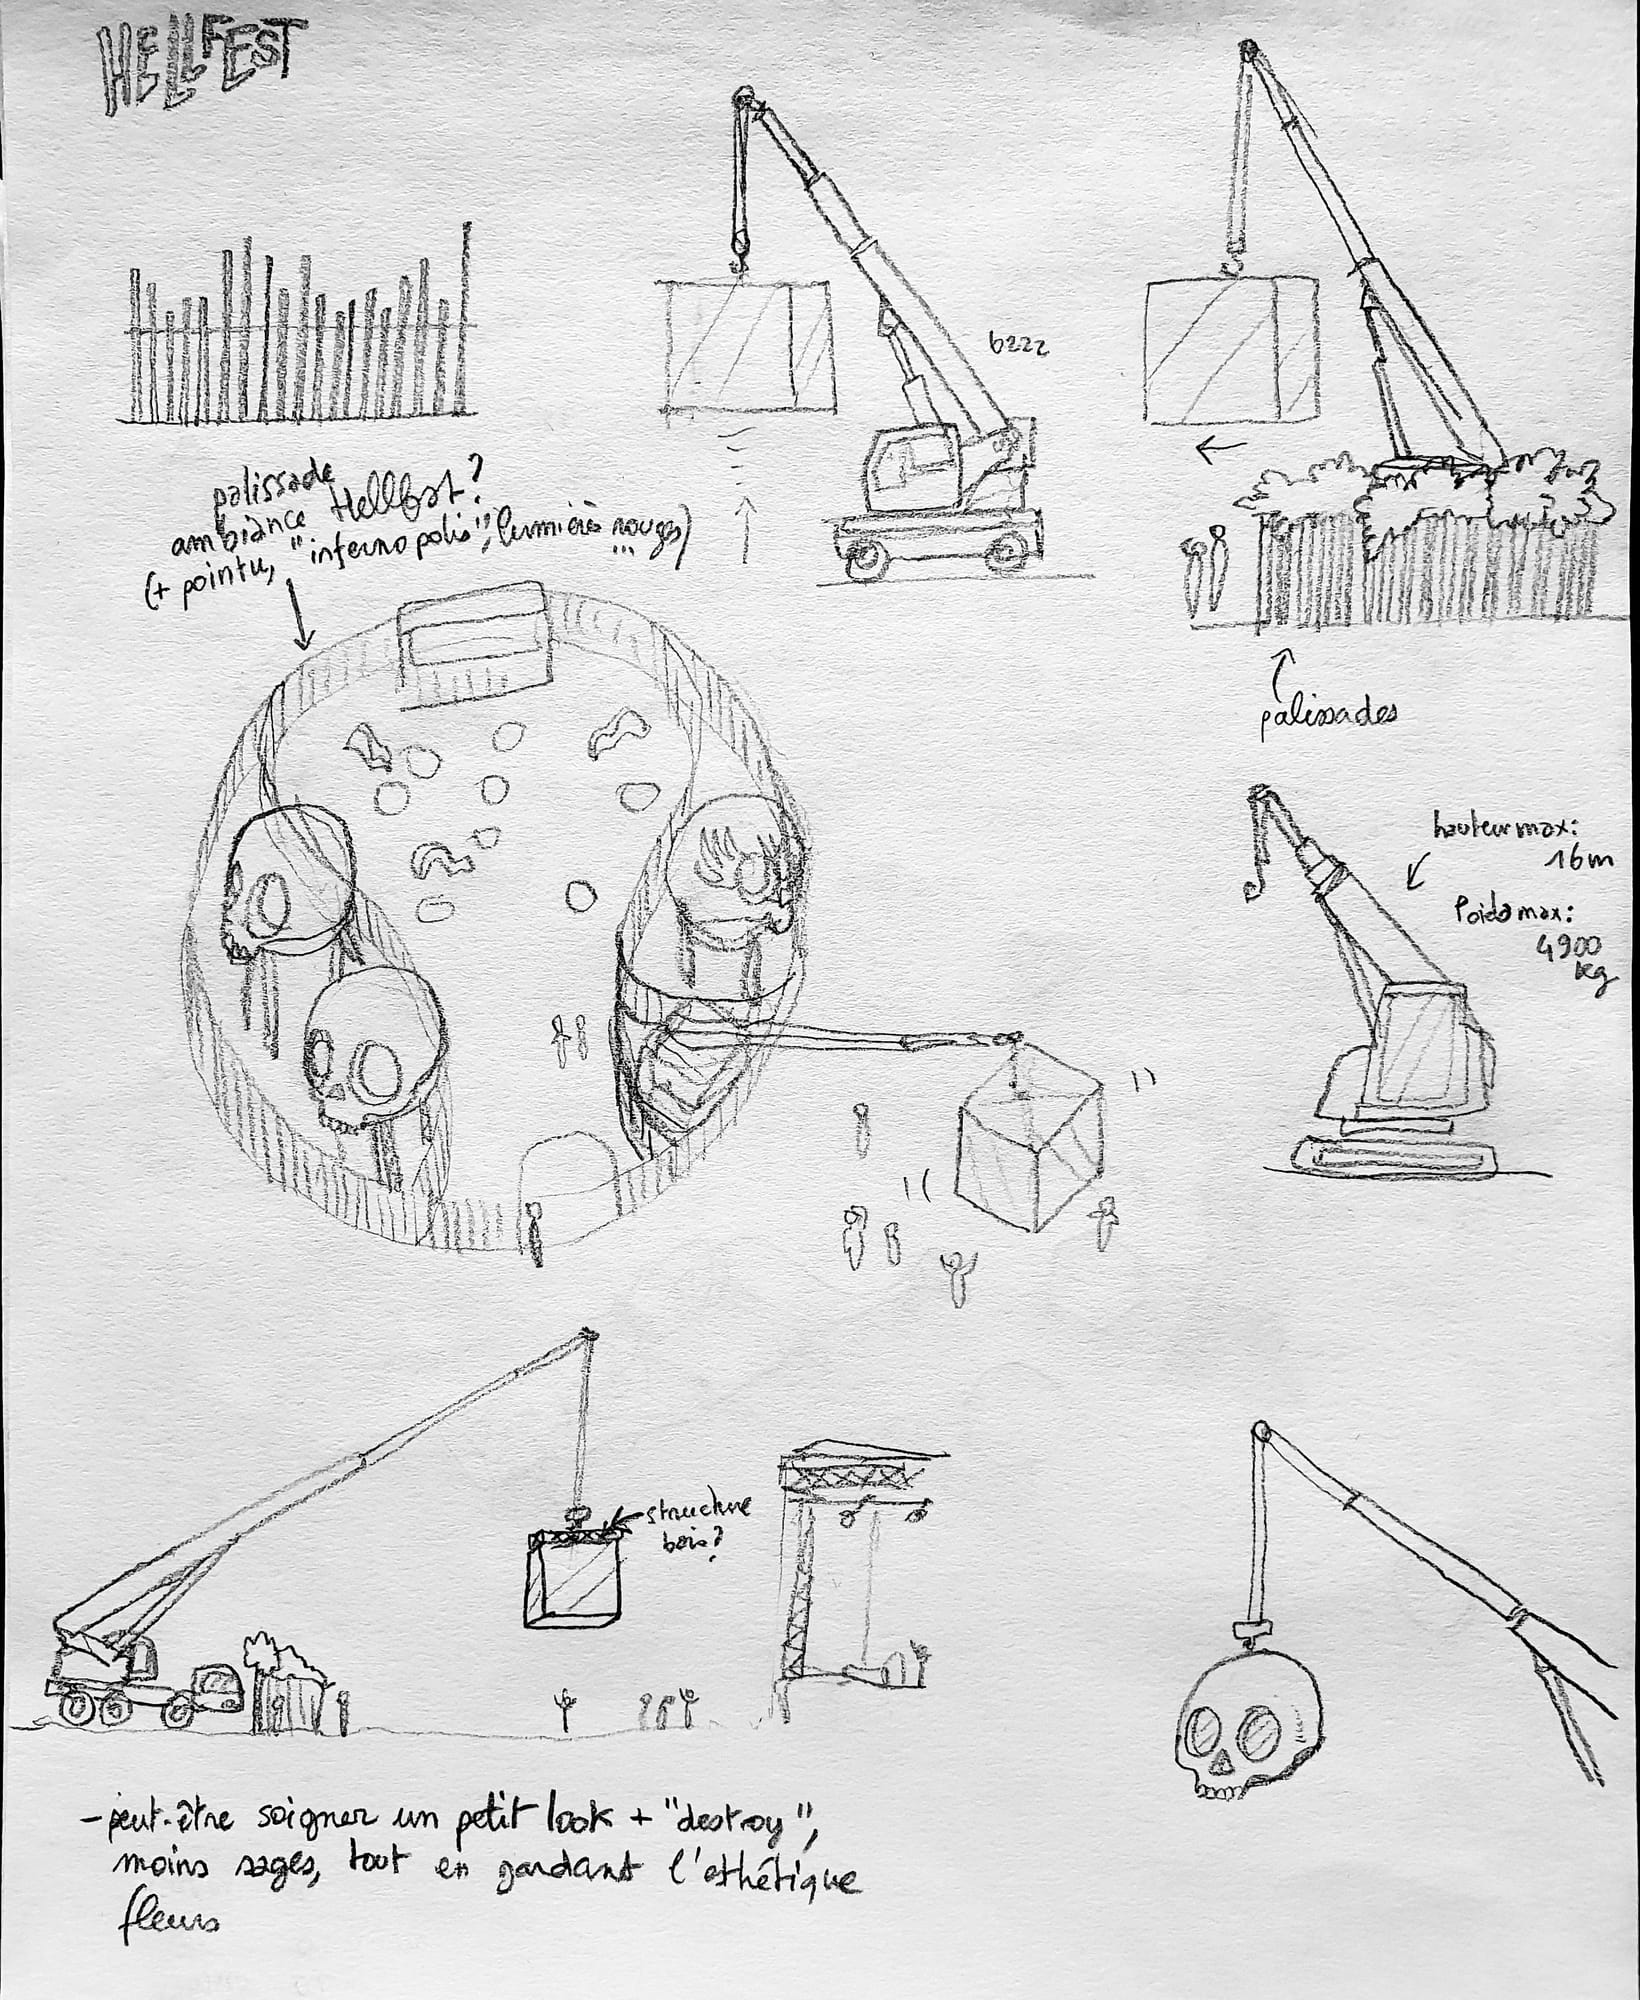 HELLFEST
bzzz
palissade
ambiance Hellfest?
(+ pointu, "infernopolis", lumières rouges)
...
palissades
hauteur max:
16m
Poids max:
4900
kg
structure
bois?
- peut-être soigner un petit look + "destroy",
moins sages, tout en gardant l'esthétique
fleurs